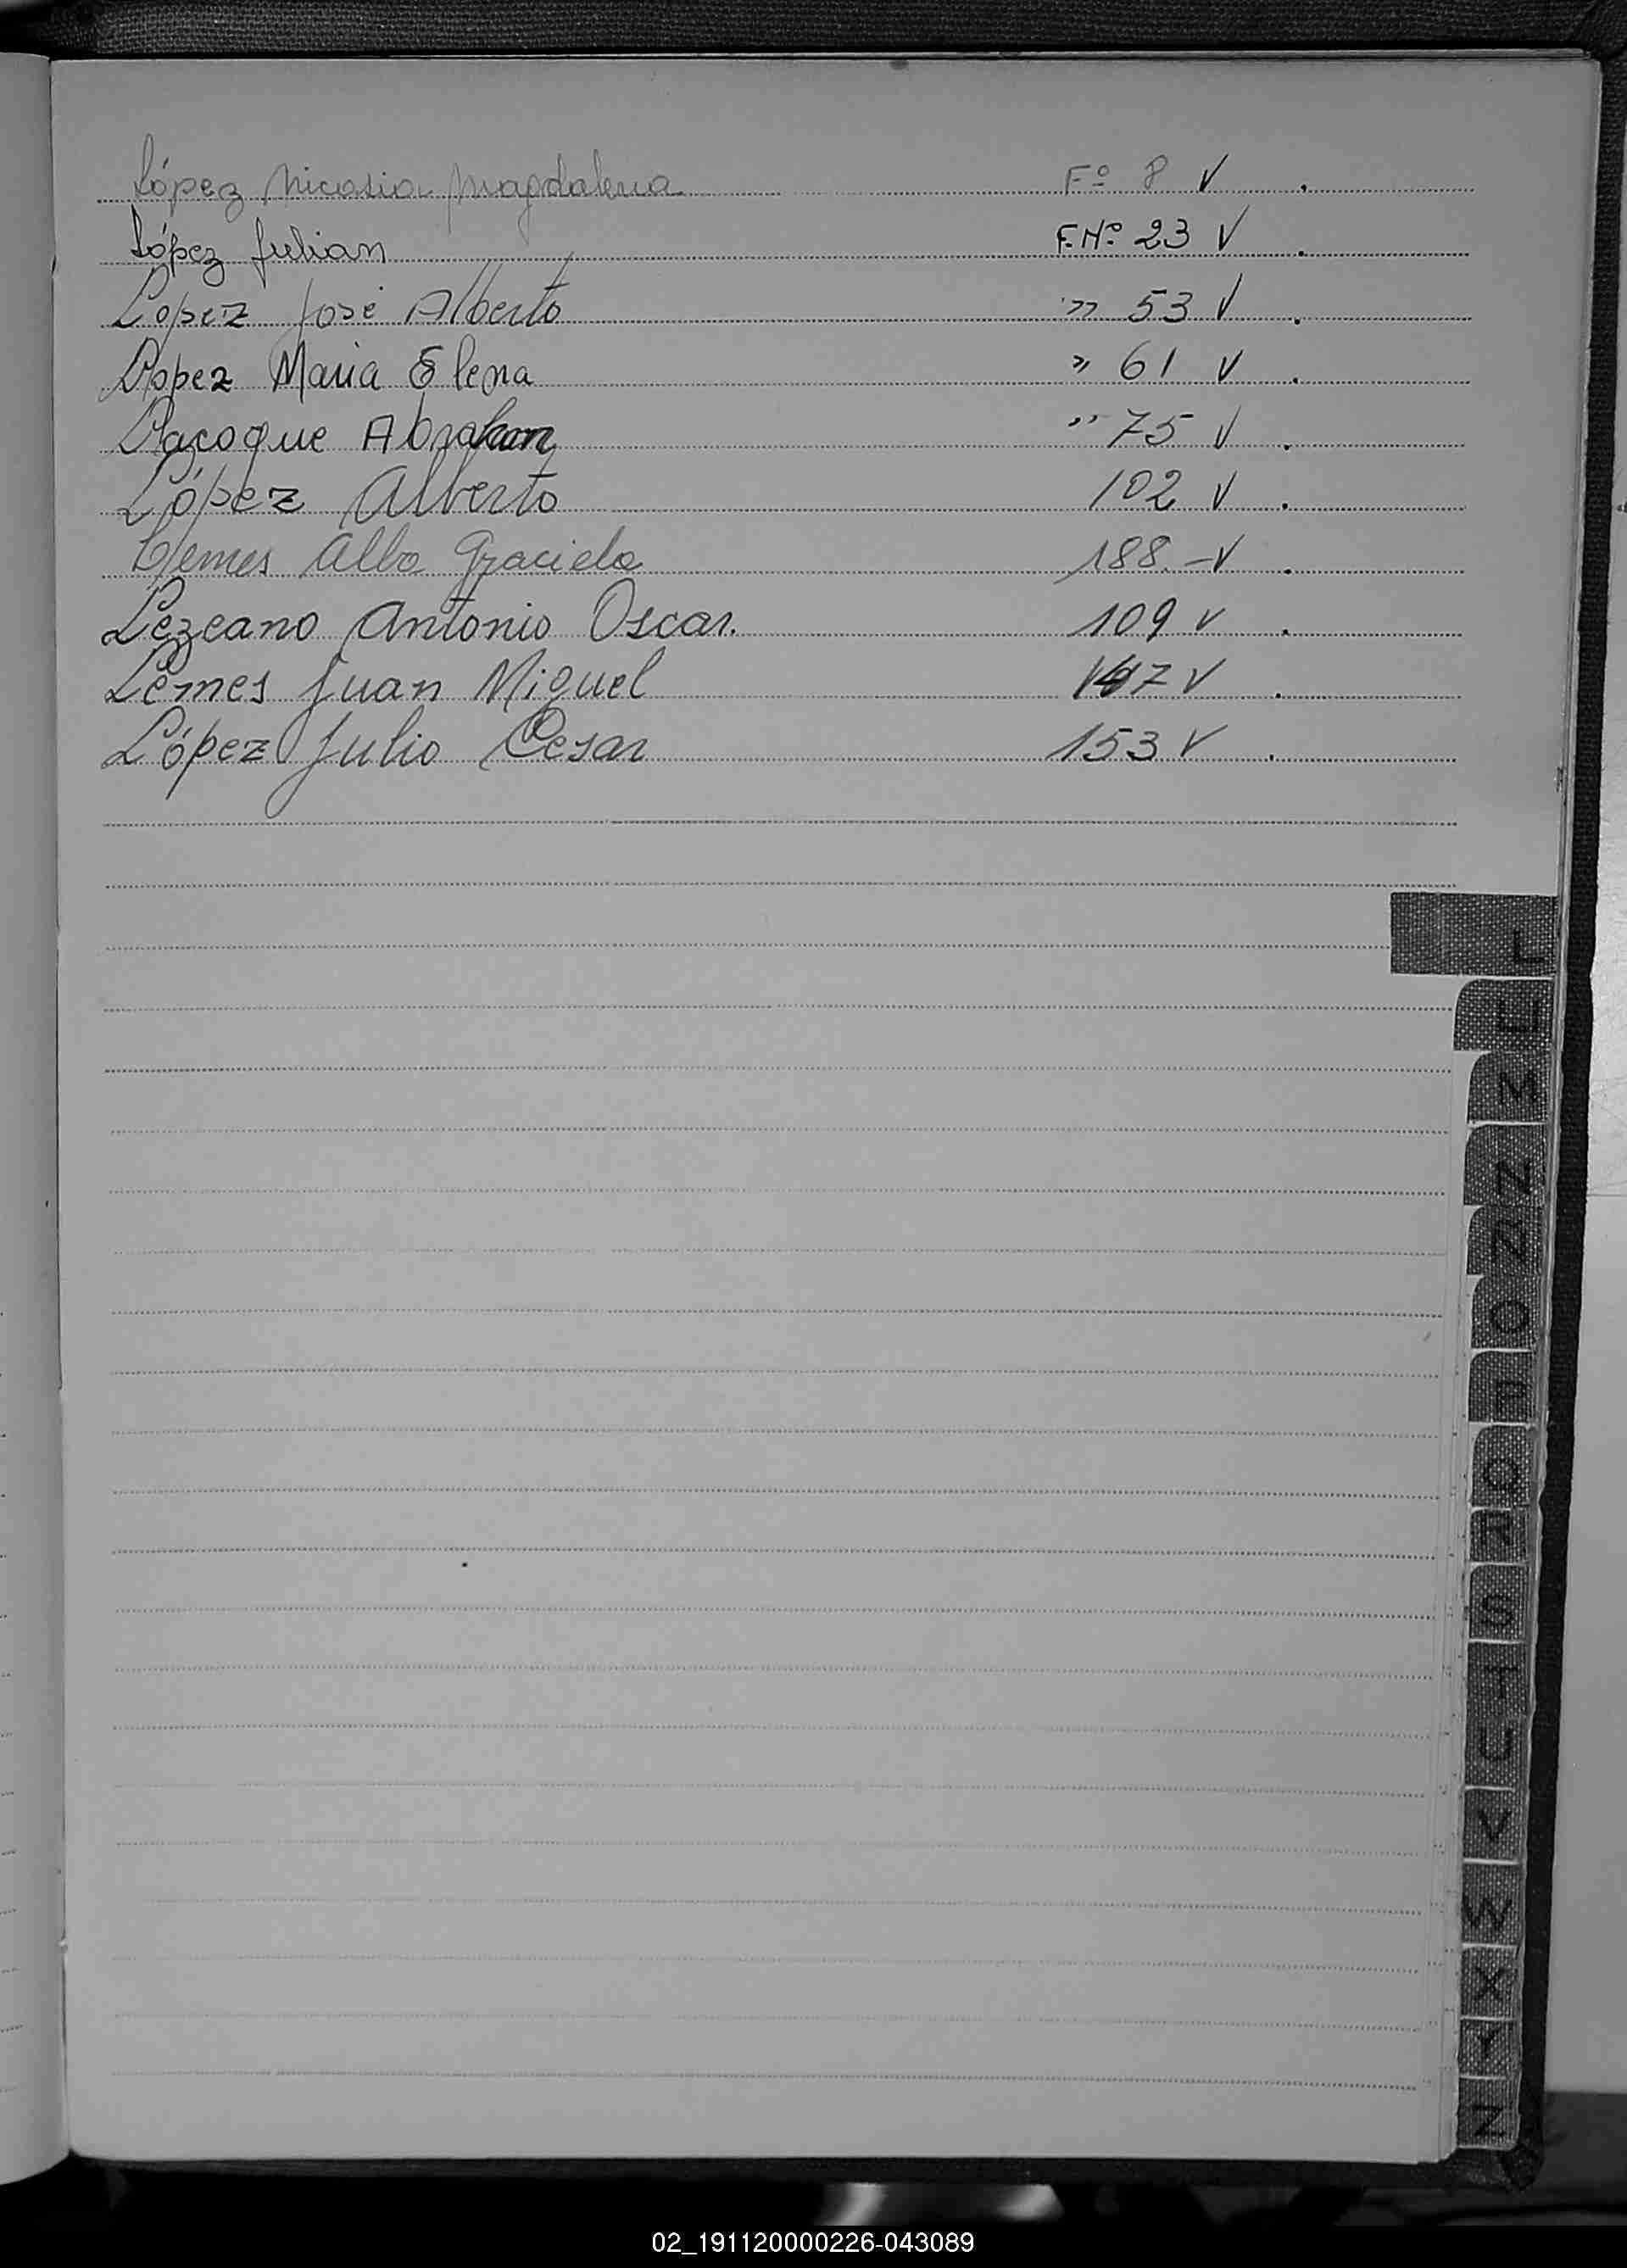 López Nicasia Magdalena Fº 8 V .
López Julian F.Nº 23 V .
Lopez José Alberto " 53 V .
Lopez Maria Elena " 61 V .
Lacoque Abraham " 75 V .
López Alberto 102 V .
Lemes Alba Graciela 188.-V .
Lezcano Antonio Oscar. 109 V .
Lemes Juan Miguel 147 V .
López Julio Cesar 153 V .
L
LL
M
N
Ñ
O
P
Q
R
S
T
U
V
W
X
Y
Z
02_191120000226-043089